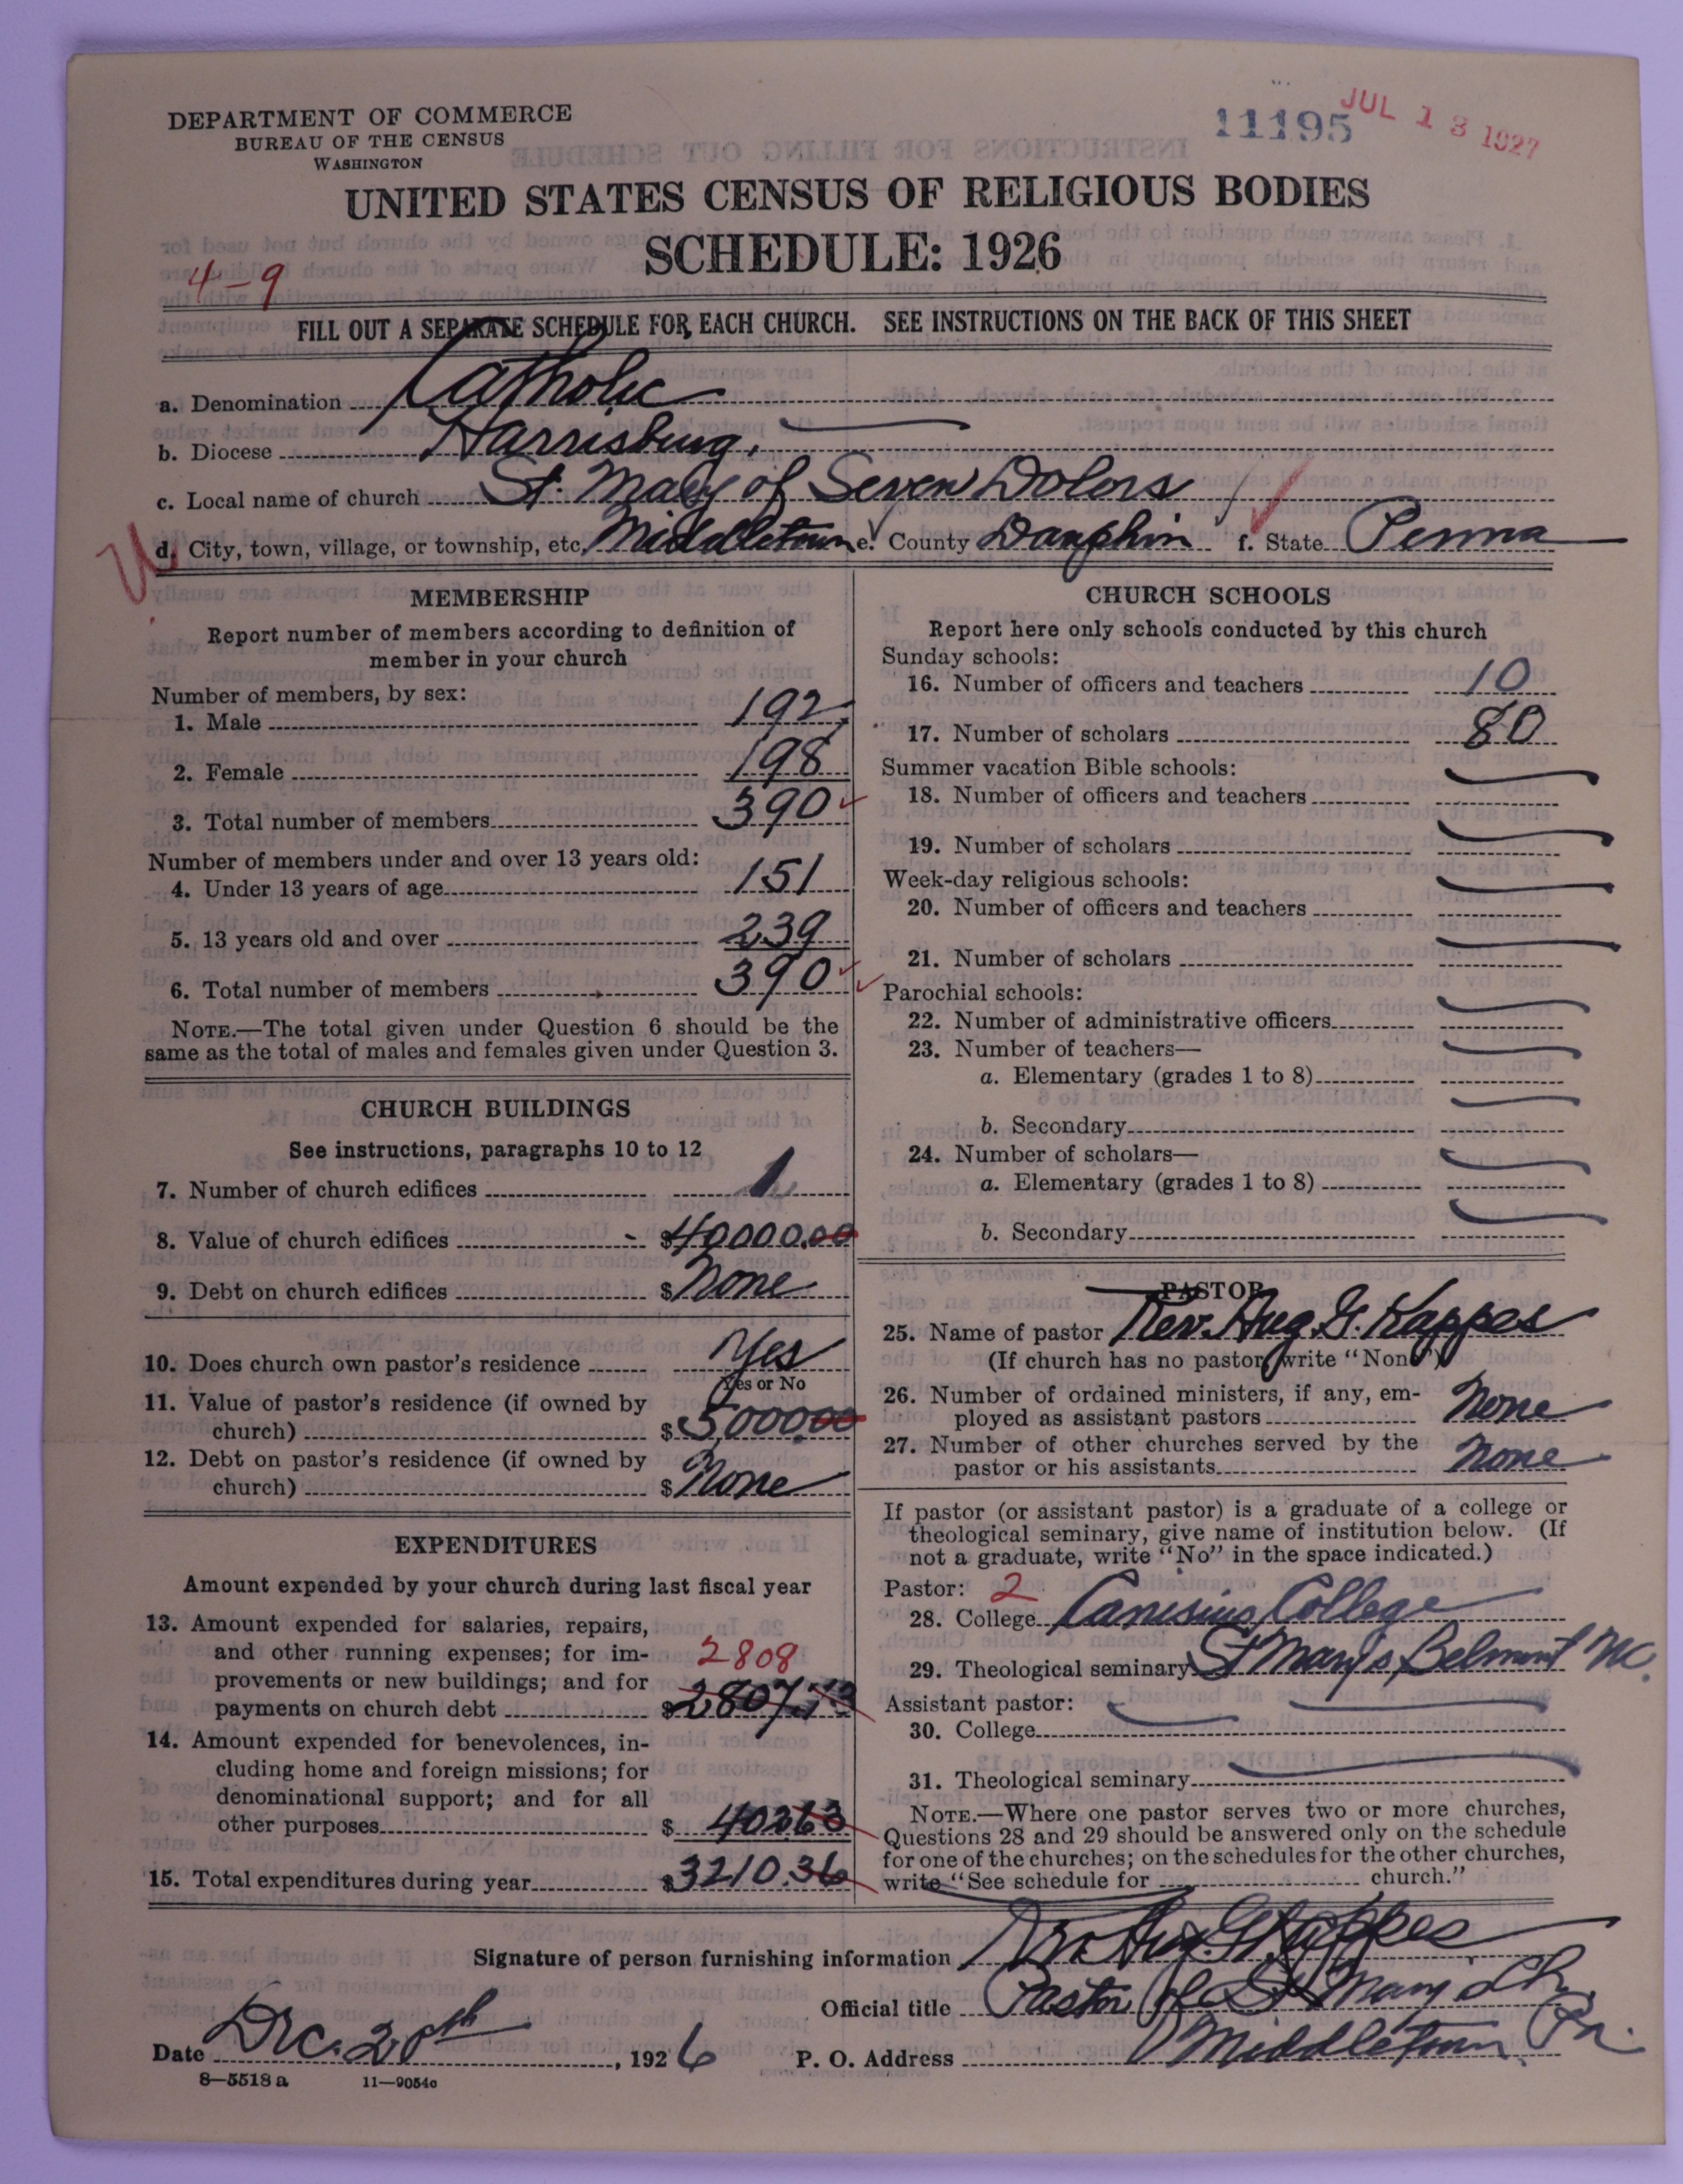 DEPARTMENT OF COMMERCE
BUREAU OF THE CENSUS
WASHINGTON
11195
JUL 13 1927
UNITED STATES CENSUS OF RELIGIOUS BODIES
SCHEDULE: 1926
4-9
FILL OUT A SEPARATE SCHEDULE FOR EACH CHURCH. SEE INSTRUCTIONS ON THE BACK OF THIS SHEET
a. Denomination Catholic
b. Diocese Harrisburg.
c. Local name of church St. Mary of Seven Dolors
d. City, town, village, or township, etc. Middletown e. County Dauphin f. State Penna
MEMBERSHIP
Report number of members according to definition of
member in your church
Number of members, by sex:
1. Male 192
2. Female 198
3. Total number of members 390
Number of members under and over 13 years old:
4. Under 13 years of age 151
5. 13 years old and over 239
6. Total number of members 390
NOTE.—The total given under Question 6 should be the
same as the total of males and females given under Question 3.
CHURCH BUILDINGS
See instructions, paragraphs 10 to 12
7. Number of church edifices 1
8. Value of church edifices $40000.00
9. Debt on church edifices $ None
10. Does church own pastor's residence Yes
Yes or No
11. Value of pastor's residence (if owned by
church) $5,000.00
12. Debt on pastor's residence (if owned by
church) $ None
EXPENDITURES
Amount expended by your church during last fiscal year
13. Amount expended for salaries, repairs,
and other running expenses; for im-
provements or new buildings; and for
2808
payments on church debt $2807.73
14. Amount expended for benevolences, in-
cluding home and foreign missions; for
denominational support; and for all
other purposes $ 40263
15. Total expenditures during year $3210.36
CHURCH SCHOOLS
Report here only schools conducted by this church
Sunday schools:
16. Number of officers and teachers 10
17. Number of scholars 80
Summer vacation Bible schools:
18. Number of officers and teachers
19. Number of scholars
Week-day religious schools:
20. Number of officers and teachers
21. Number of scholars
Parochial schools:
22. Number of administrative officers
23. Number of teachers—
a. Elementary (grades 1 to 8)
b. Secondary
24. Number of scholars—
a. Elementary (grades 1 to 8)
b. Secondary
PASTOR
25. Name of pastor Rev. Aug. G. Kappes
(If church has no pastor, write "None")
26. Number of ordained ministers, if any, em-
ployed as assistant pastors None
27. Number of other churches served by the
pastor or his assistants None
If pastor (or assistant pastor) is a graduate of a college or
theological seminary, give name of institution below. (If
not a graduate, write "No" in the space indicated.)
Pastor: 2
28. College Canisius College
29. Theological seminary St Mary's Belmont NC.
Assistant pastor:
30. College
31. Theological seminary
NOTE.—Where one pastor serves two or more churches,
Questions 28 and 29 should be answered only on the schedule
for one of the churches; on the schedules for the other churches,
write "See schedule for church."
Signature of person furnishing information Aug. G Kappes
Official title Pastor of St Mary's Ch.
Date Dec. 20th, 1926 P. O. Address Middletown Pa.
8—5518 a 11—9054c